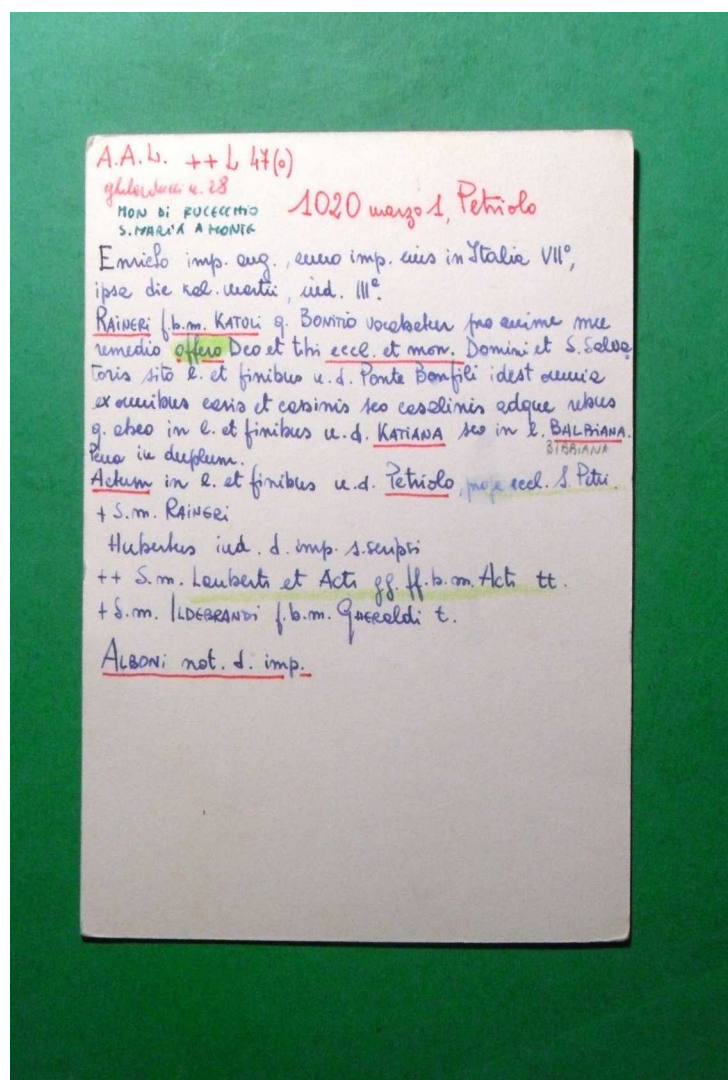 A.A.L. ++ L 47(o)
ghilarducci n. 28
MON DI FUCECCHIO
S. MARIA A MONTE
1020 marzo 1, Petriolo
Enrico imp. aug., anno imp. eius in Italia VII°,
ipsa die kal. martii, ind. III^e.
RAINERI f.b.m. KATULI q. BONITIO vocabatur pro anime mee
remedio offero Deo et tibi eccl. et mon. Domini et S. Salva
toris sito l. et finibus u.d. Ponte Bonfili idest omnia
ex omnibus casis et cassinis seo casalinis adque rebus
q. abeo in l. et finibus u.d. KATIANA seo in l. BALBIANA.
BIBBIANA
Pena in duplum.
Actum in l. et finibus u.d. Petriolo, prope eccl. S. Petri.
+ S.m. RAINERI
Hubertus iud. d. imp. s.scripsi
++ S.m. Lamberti et Acti gg. ff.b.m. Acti tt.
+ S.m. ILDEBRANDI f.b.m. GHERALDI t.
ALBONI not. d. imp.